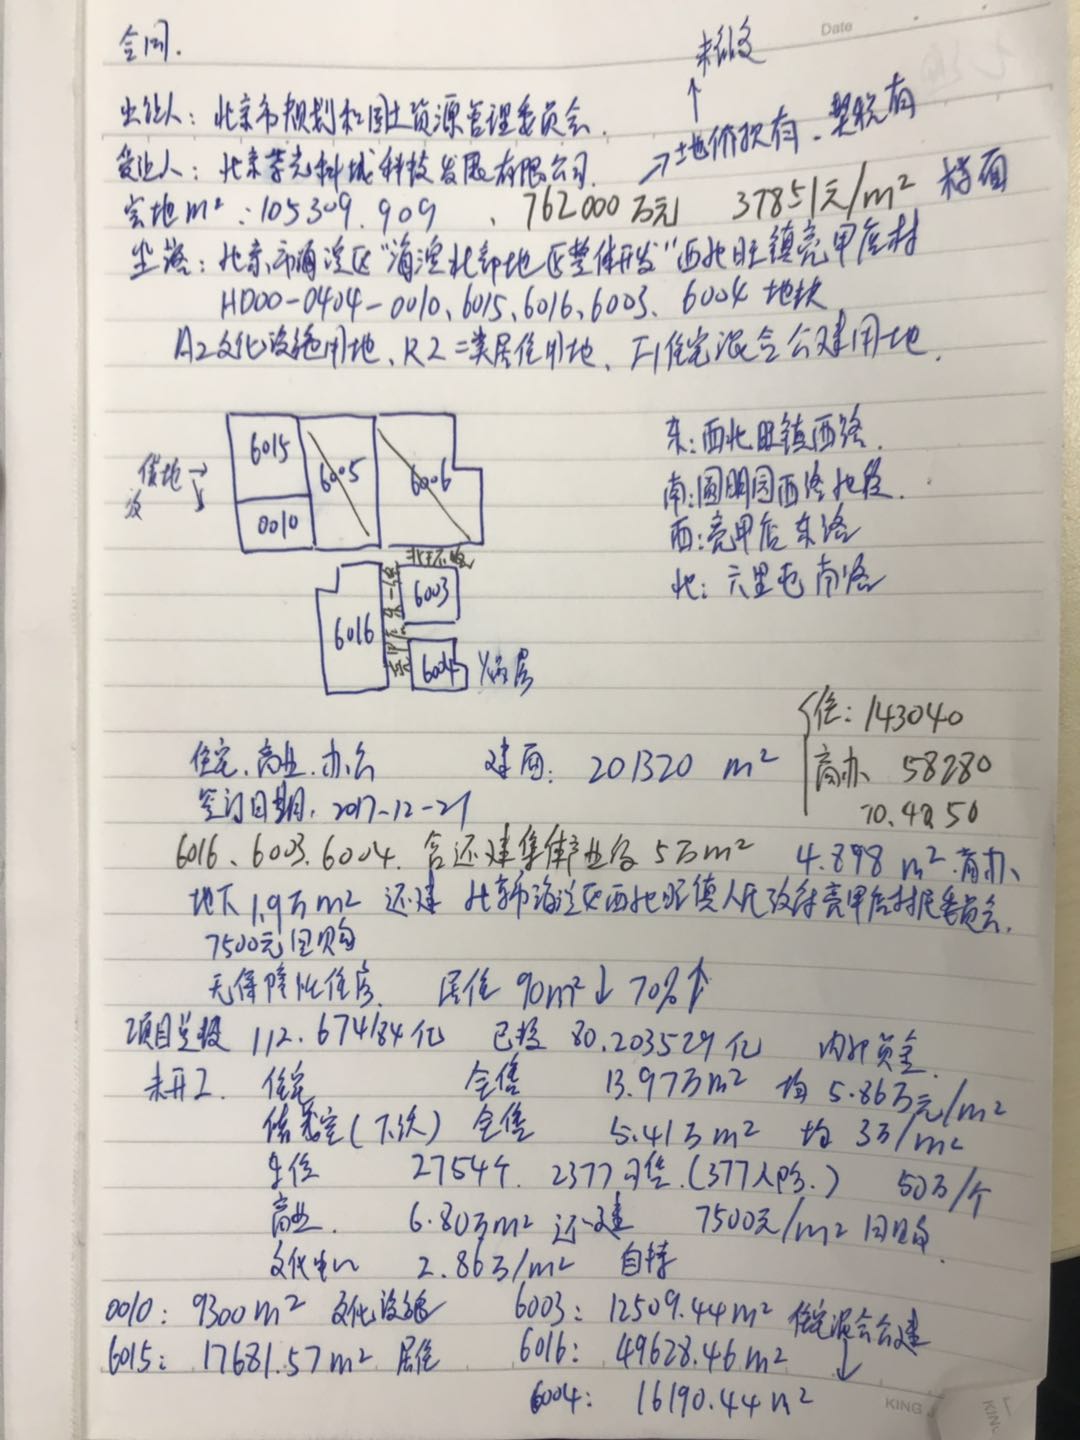 合同.
Date
未缴交
出让人: 北京市规划和国土资源管理委员会.
地价款有、契税有
受让人: 北京 科技发展有限公司.
宗地m²: 105309.909 、 762000万元 37851元/m² 楼面
坐落: 北京市海淀区"海淀北部地区整体开发"西北旺镇亮甲店村
HD00-0404-0010、6015、6016、6003、6004地块
A2文化设施用地、R2二类居住用地、F1住宅混合公建用地.
6015 6005 6006
0010
东: 西北旺镇西路.
南: 圆明园西路北段.
西: 亮甲店东路
北: 六里屯南路
6016 6003
6004
住: 143040
住宅.商业.办公 建面: 201320 m² 商办 58280
签订日期. 2017-12-27 70.4250
6016、6003.6004. 含还建集体产业 5万m² 4.898 m².商办、
地下1.9万m² 还建 北京市海淀区西北旺镇人民政府亮甲店村民委员会.
7500元回购
无保障性住房. 居住90m²↓ 70%↑
项目总投 112.674184亿 已投 80.203529亿 内外资金.
未开工. 住宅 全售 13.97万m² 均5.86万元/m²
储藏室(下次) 全售 5.41万m² 均3万/m²
车位 2754个. 2377可售.(377人防.) 50万/个
商业. 6.80万m² 还建 7500元/m²回购.
文化中心 2.86万/m² 自持
0010: 9300m² 文化设施 6003: 12509.44m² 住宅混合公建
6015: 17681.57m² 居住 6016: 49628.46m²
6004: 16190.44m²
KING